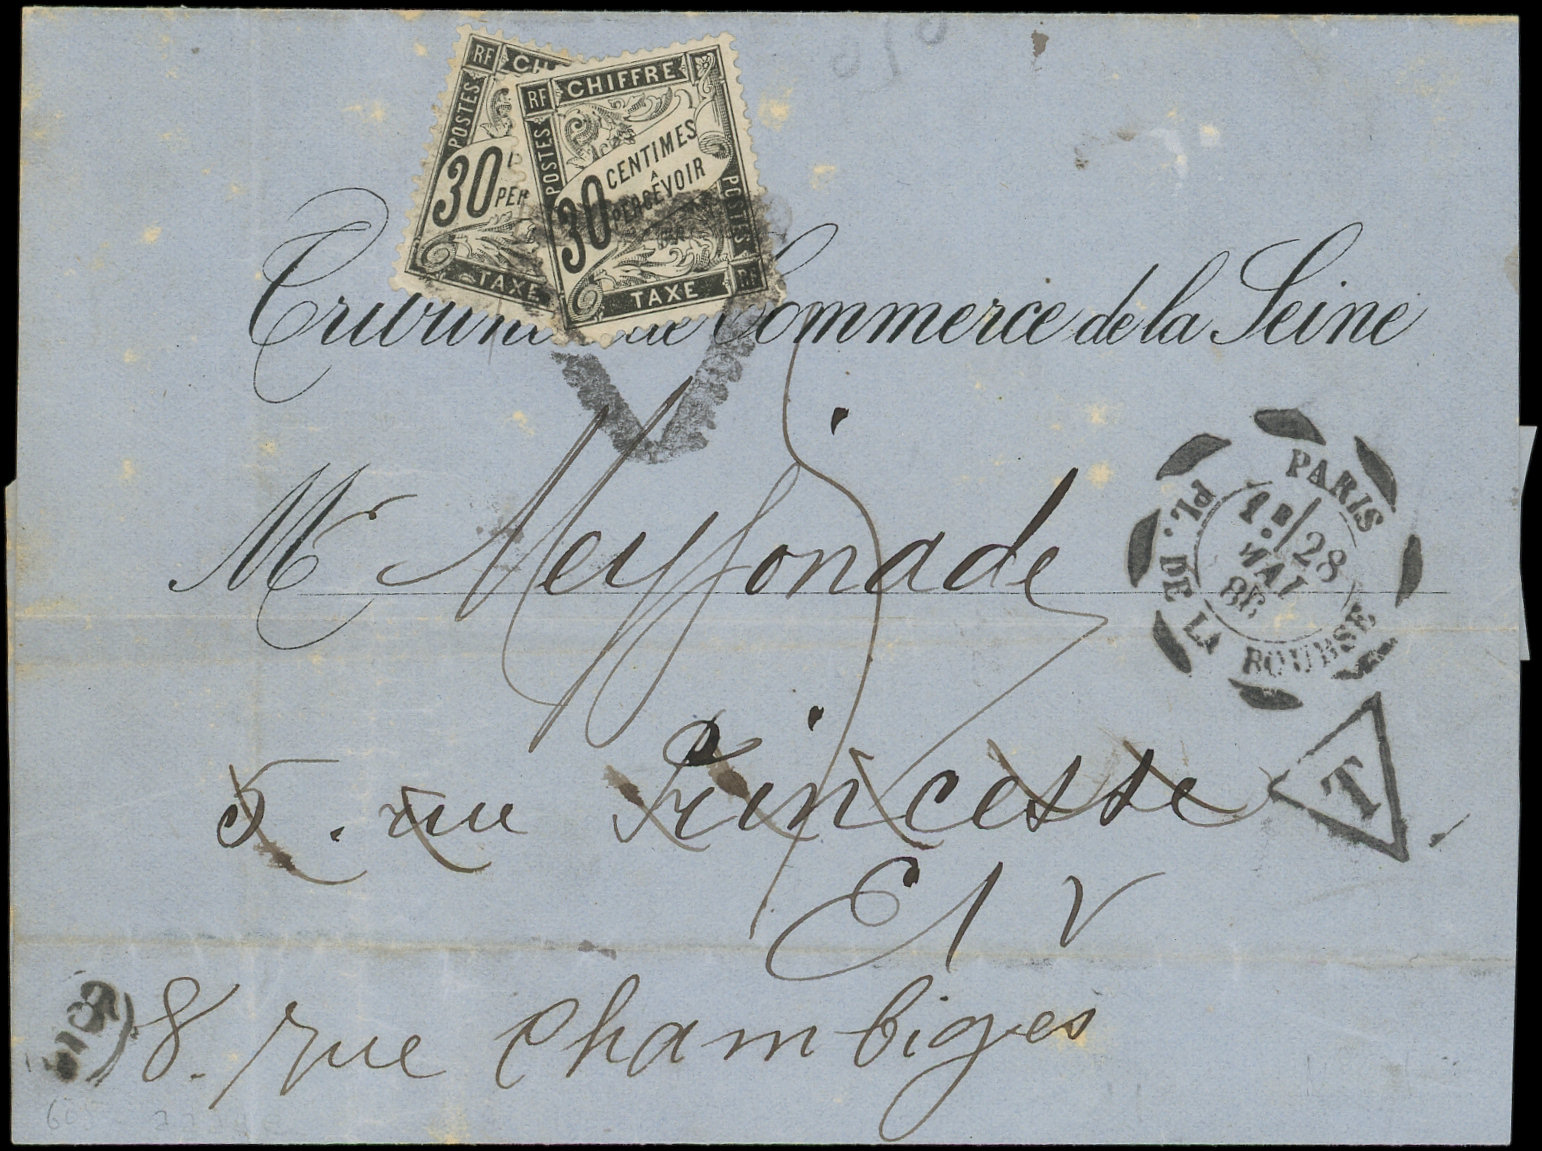 RF CH
POSTES
30 PER
TAXE
RF CHIFFRE
POSTES
30 CENTIMES
À
PERCEVOIR
POSTES
TAXE
Tribunal de Commerce de la Seine
Mr Meyssonade
5. rue Princesse
EV
8. rue Chambiges
PARIS
PL. DE LA BOURSE
1E/28
MAI
86
T